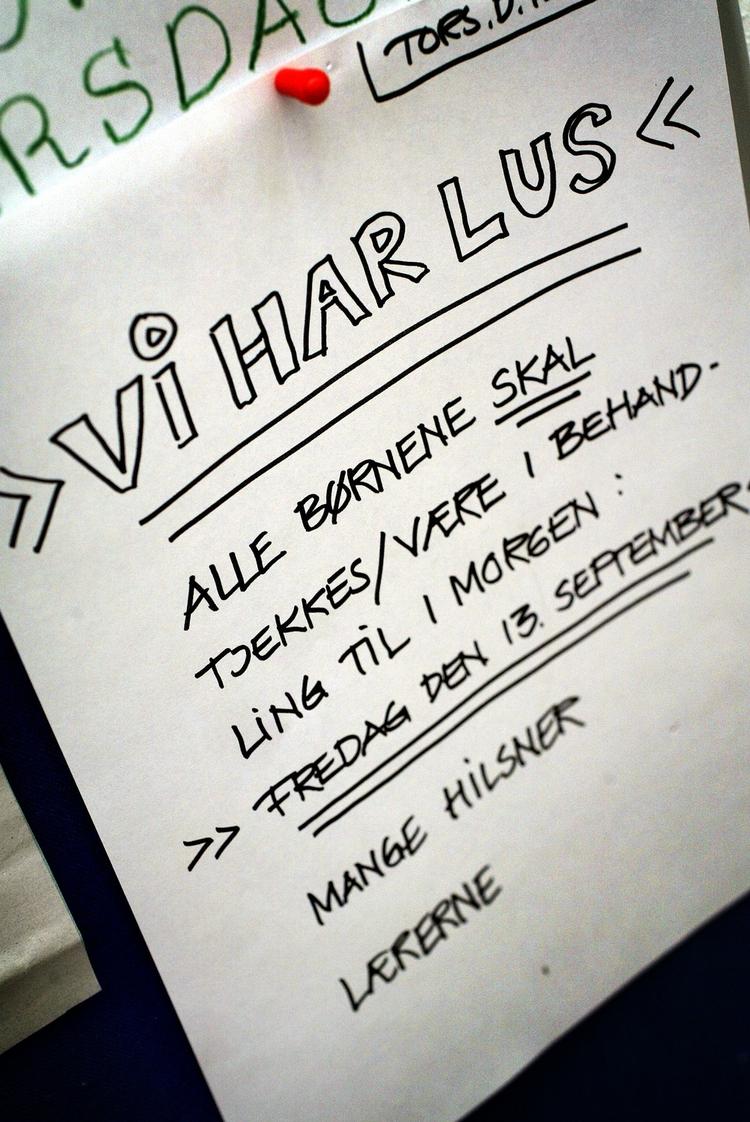 RSDAG
TORS.D.
>> Vi HAR LUS <<
ALLE BØRNENE SKAL
TJEKKES/VÆRE I BEHAND-
LiNG TiL I MORGEN :
>> FREDAG DEN 13. SEPTEMBER.
MANGE HiLSNER
LÆRERNE